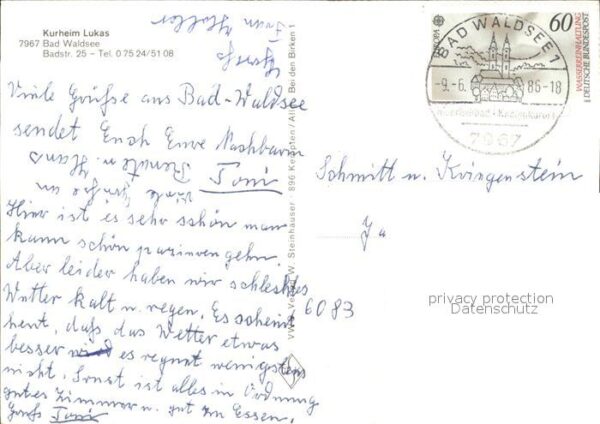 Kurheim Lukas
7967 Bad Waldsee
Badstr. 25 – Tel. 0 75 24/51 08
Grüße
Frau Haller
Viele Grüße aus Bad-Waldsee
sendet Euch Eure Nachbarin
Toni
viele Grüße an
Renate u. Hans
Hier ist es sehr schön man
kann schön pazieren gehn.
Aber leider haben wir schlechtes
Wetter kalt u. regen. Es scheint
heut, daß das Wetter etwas
besser wird es regnet wenigstens
nicht. Sonst ist alles in Ordnung
gutes Zimmer u. gut zu Essen.
Gruß Toni
W. Steinhauser · 896 Kempten/Allg. Bei den Birken 1
EUROPA
60
WASSERREINHALTUNG
DEUTSCHE BUNDESPOST
BAD WALDSEE 1
-9.-6. 86-18
7967
Schmitt u. Kringenstein
Ja
6083
privacy protection
Datenschutz